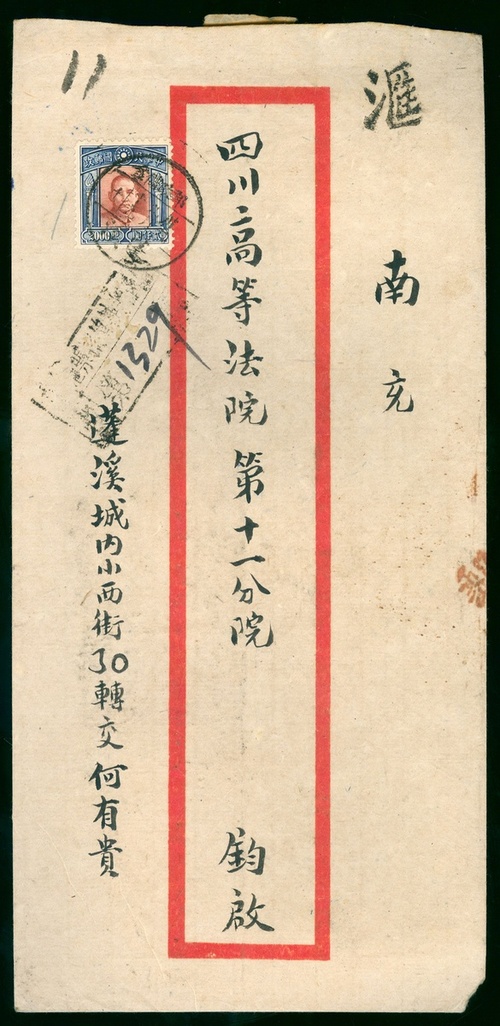 滙
南充
四川高等法院第十一分院 鈞啟
蓬溪城內小西街30轉交何有貴
11
2000
1329